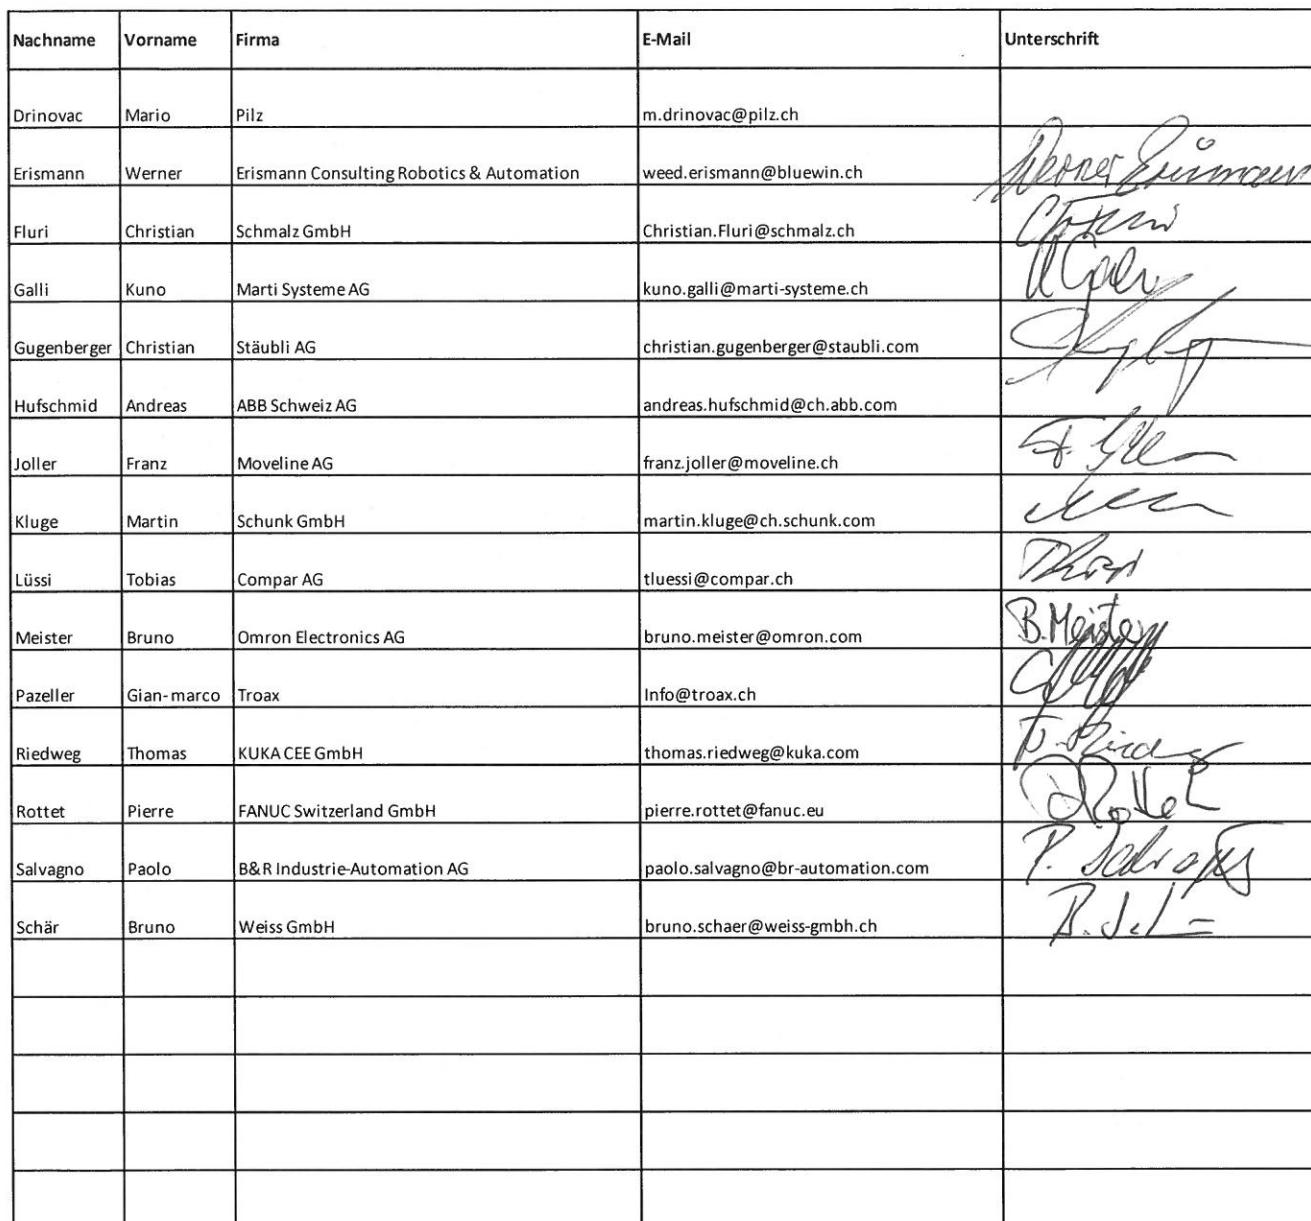 Nachname Vorname Firma E-Mail Unterschrift
Drinovac Mario Pilz m.drinovac@pilz.ch
Erismann Werner Erismann Consulting Robotics & Automation weed.erismann@bluewin.ch Werner Erismann
Fluri Christian Schmalz GmbH Christian.Fluri@schmalz.ch
Galli Kuno Marti Systeme AG kuno.galli@marti-systeme.ch
Gugenberger Christian Stäubli AG christian.gugenberger@staubli.com
Hufschmid Andreas ABB Schweiz AG andreas.hufschmid@ch.abb.com
Joller Franz Moveline AG franz.joller@moveline.ch
Kluge Martin Schunk GmbH martin.kluge@ch.schunk.com
Lüssi Tobias Compar AG tluessi@compar.ch
Meister Bruno Omron Electronics AG bruno.meister@omron.com B. Meister
Pazeller Gian-marco Troax Info@troax.ch
Riedweg Thomas KUKA CEE GmbH thomas.riedweg@kuka.com
Rottet Pierre FANUC Switzerland GmbH pierre.rottet@fanuc.eu
Salvagno Paolo B&R Industrie-Automation AG paolo.salvagno@br-automation.com
Schär Bruno Weiss GmbH bruno.schaer@weiss-gmbh.ch